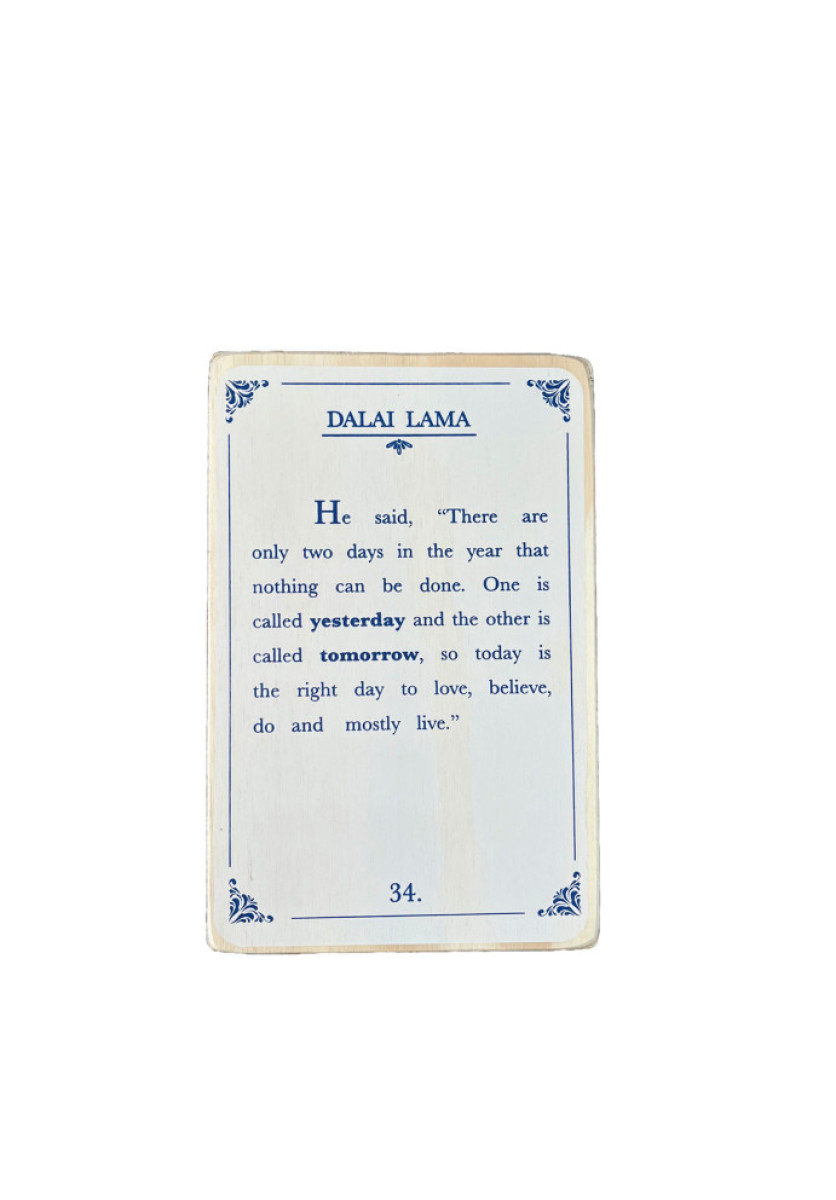 DALAI LAMA
He said, “There are
only two days in the year that
nothing can be done. One is
called yesterday and the other is
called tomorrow, so today is
the right day to love, believe,
do and mostly live.”
34.